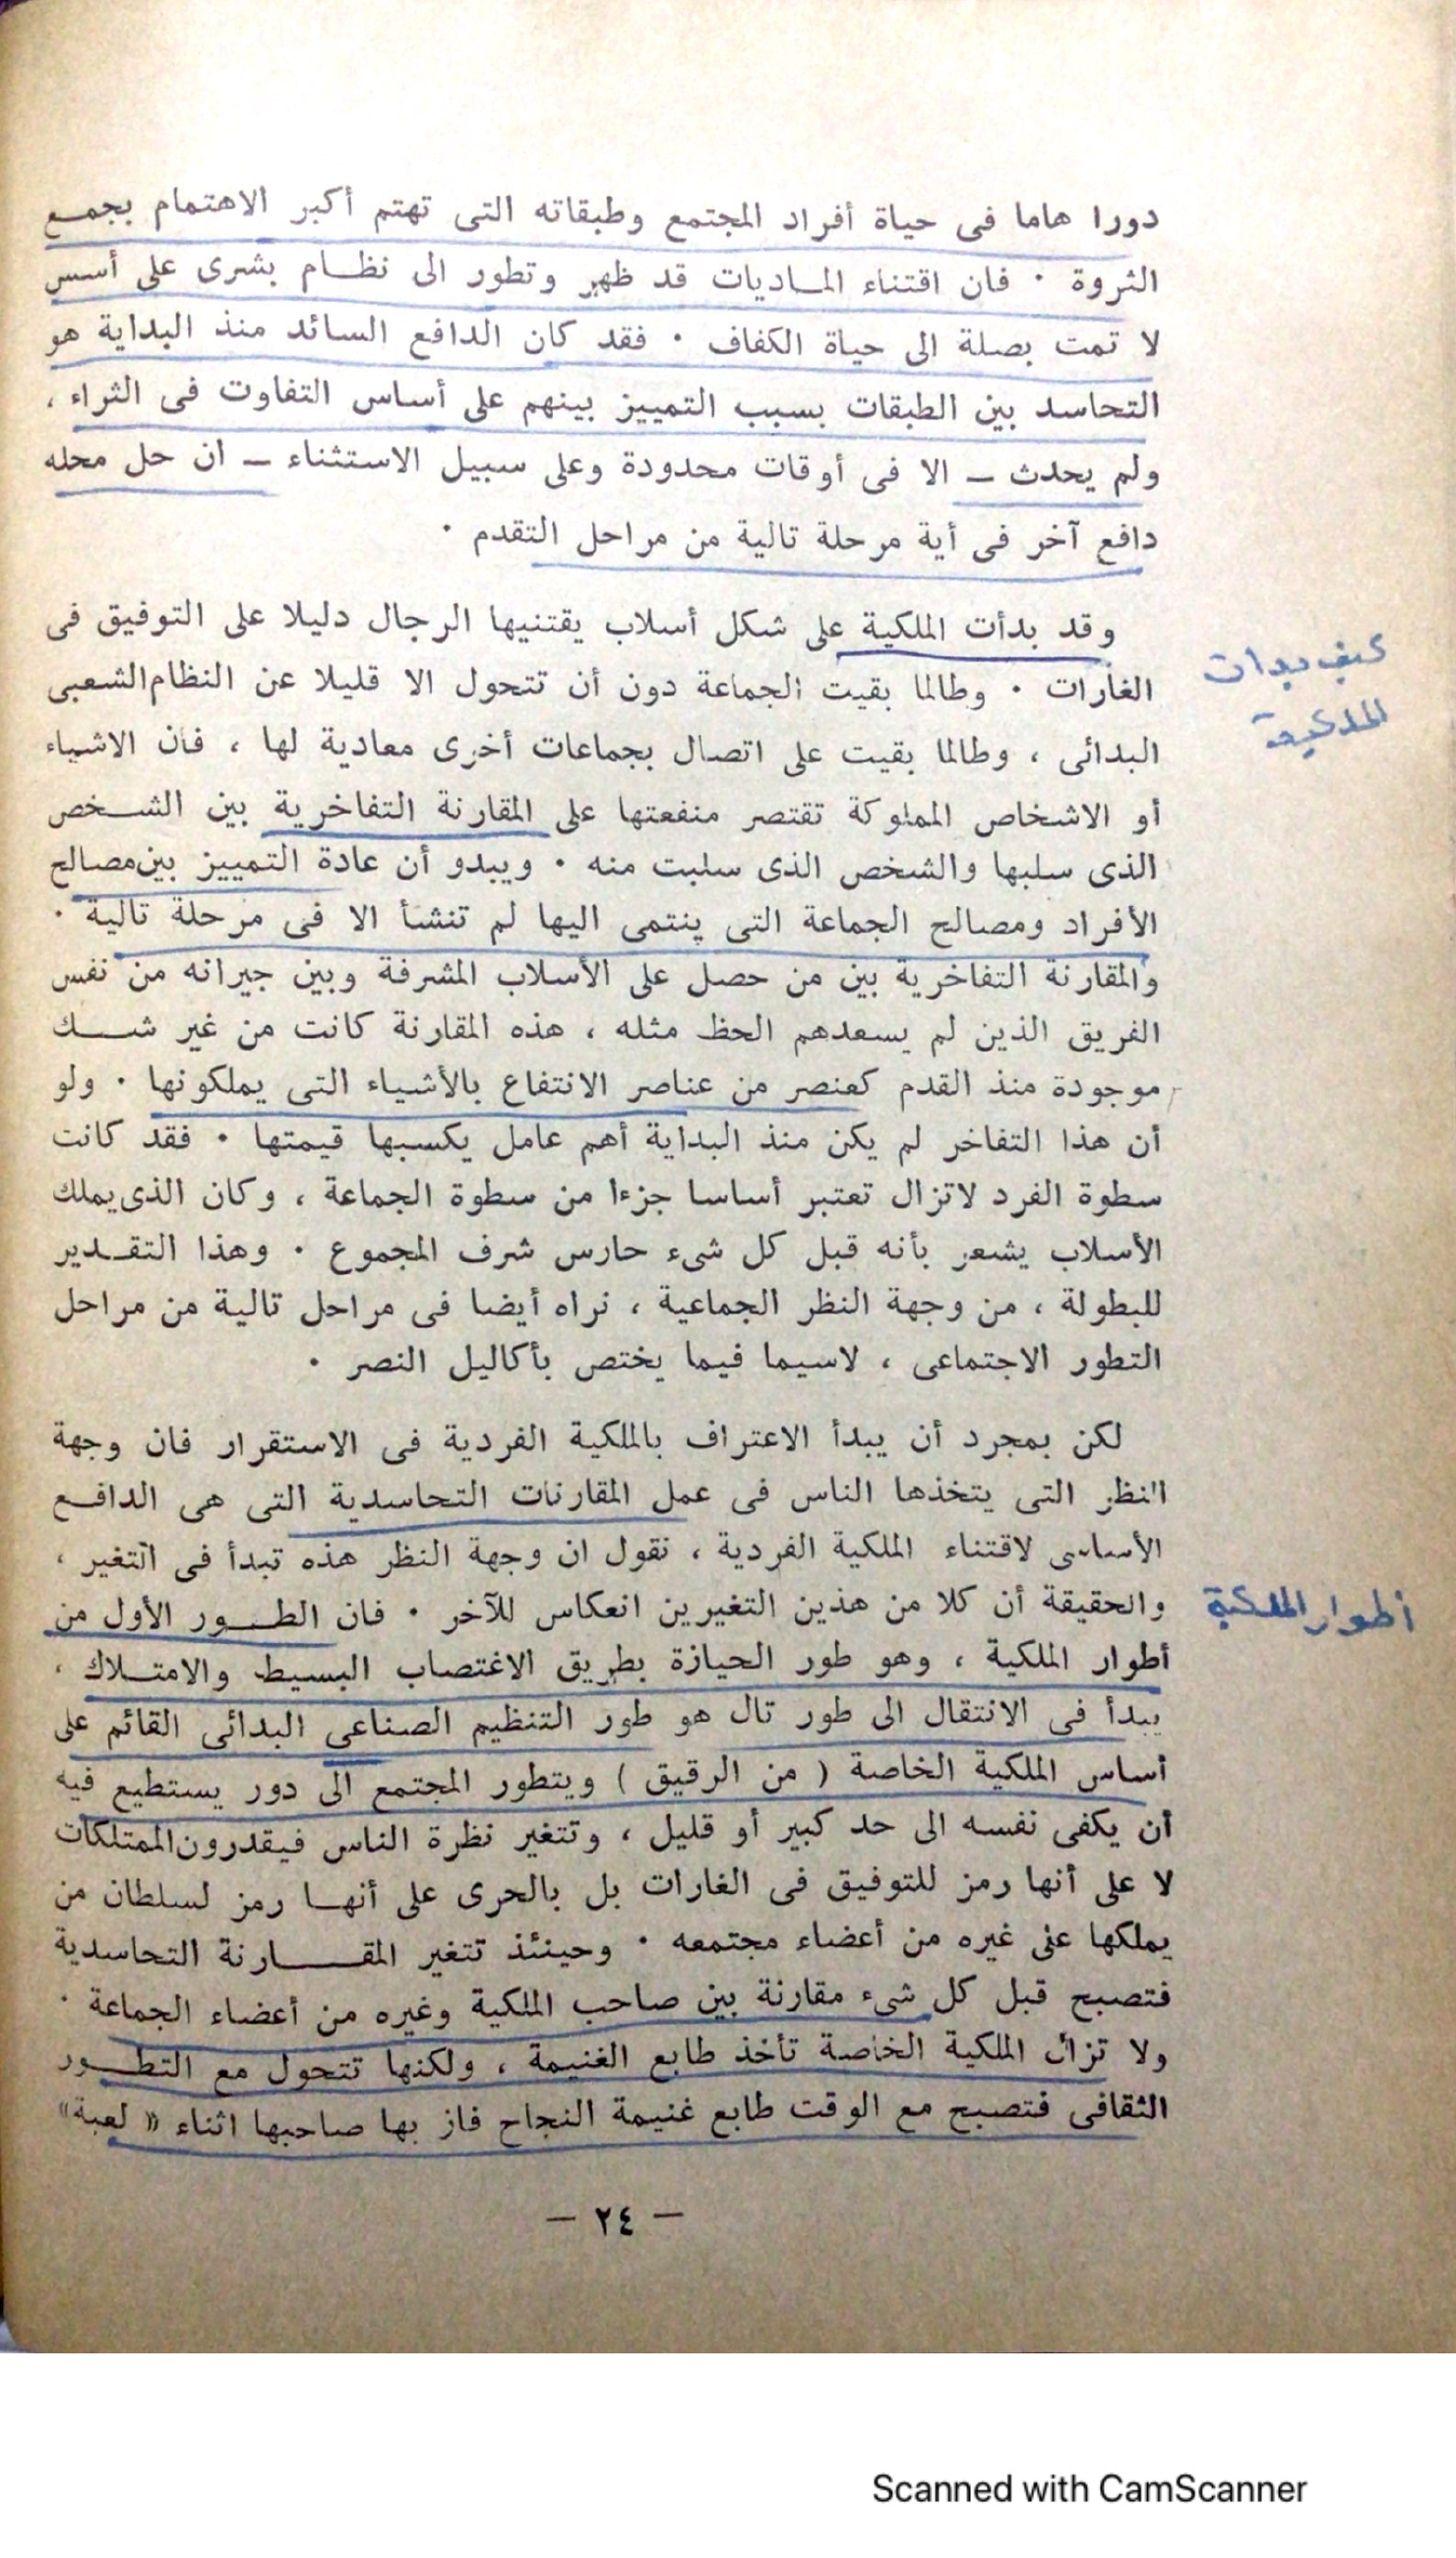 دورا هاما فى حياة أفراد المجتمع وطبقاته التى تهتم أكبر الاهتمام بجمع
الثروة ٠ فان اقتناء الماديات قد ظهر وتطور الى نظام بشرى على أسس
لا تمت بصلة الى حياة الكفاف ٠ فقد كان الدافع السائد منذ البداية هو
التحاسد بين الطبقات بسبب التمييز بينهم على أساس التفاوت فى الثراء ،
ولم يحدث ــ الا فى أوقات محدودة وعلى سبيل الاستثناء ــ ان حل محله
دافع آخر فى أية مرحلة تالية من مراحل التقدم ٠
وقد بدأت الملكية على شكل أسلاب يقتنيها الرجال دليلا على التوفيق فى
الغارات ٠ وطالما بقيت الجماعة دون أن تتحول الا قليلا عن النظام الشعبى
البدائى ، وطالما بقيت على اتصال بجماعات أخرى معادية لها ، فان الاشياء
أو الاشخاص المملوكة تقتصر منفعتها على المقارنة التفاخرية بين الشخص
الذى سلبها والشخص الذى سلبت منه ٠ ويبدو أن عادة التمييز بين مصالح
الأفراد ومصالح الجماعة التى ينتمى اليها لم تنشأ الا فى مرحلة تالية ٠
والمقارنة التفاخرية بين من حصل على الأسلاب المشرفة وبين جيرانه من نفس
الفريق الذين لم يسعدهم الحظ مثله ، هذه المقارنة كانت من غير شك
موجودة منذ القدم كعنصر من عناصر الانتفاع بالأشياء التى يملكونها ٠ ولو
أن هذا التفاخر لم يكن منذ البداية أهم عامل يكسبها قيمتها ٠ فقد كانت
سطوة الفرد لاتزال تعتبر أساسا جزءا من سطوة الجماعة ، وكان الذى يملك
الأسلاب يشعر بأنه قبل كل شىء حارس شرف المجموع ٠ وهذا التقدير
للبطولة ، من وجهة النظر الجماعية ، نراه أيضا فى مراحل تالية من مراحل
التطور الاجتماعى ، لاسيما فيما يختص بأكاليل النصر ٠
لكن بمجرد أن يبدأ الاعتراف بالملكية الفردية فى الاستقرار فان وجهة
النظر التى يتخذها الناس فى عمل المقارنات التحاسدية التى هى الدافع
الأساسى لاقتناء الملكية الفردية ، نقول ان وجهة النظر هذه تبدأ فى التغير ،
والحقيقة أن كلا من هذين التغيرين انعكاس للآخر ٠ فان الطور الأول من
أطوار الملكية ، وهو طور الحيازة بطريق الاغتصاب البسيط والامتلاك ،
يبدأ فى الانتقال الى طور تال هو طور التنظيم الصناعى البدائى القائم على
أساس الملكية الخاصة ( من الرقيق ) ويتطور المجتمع الى دور يستطيع فيه
أن يكفى نفسه الى حد كبير أو قليل ، وتتغير نظرة الناس فيقدرون الممتلكات
لا على أنها رمز للتوفيق فى الغارات بل بالحرى على أنها رمز لسلطان من
يملكها على غيره من أعضاء مجتمعه ٠ وحينئذ تتغير المقارنة التحاسدية
فتصبح قبل كل شىء مقارنة بين صاحب الملكية وغيره من أعضاء الجماعة ٠
ولا تزال الملكية الخاصة تأخذ طابع الغنيمة ، ولكنها تتحول مع التطور
الثقافى فتصبح مع الوقت طابع غنيمة النجاح فاز بها صاحبها اثناء « لعبة »
كيف بدات
الملكية
أطوار الملكية
— ٢٤ —
Scanned with CamScanner